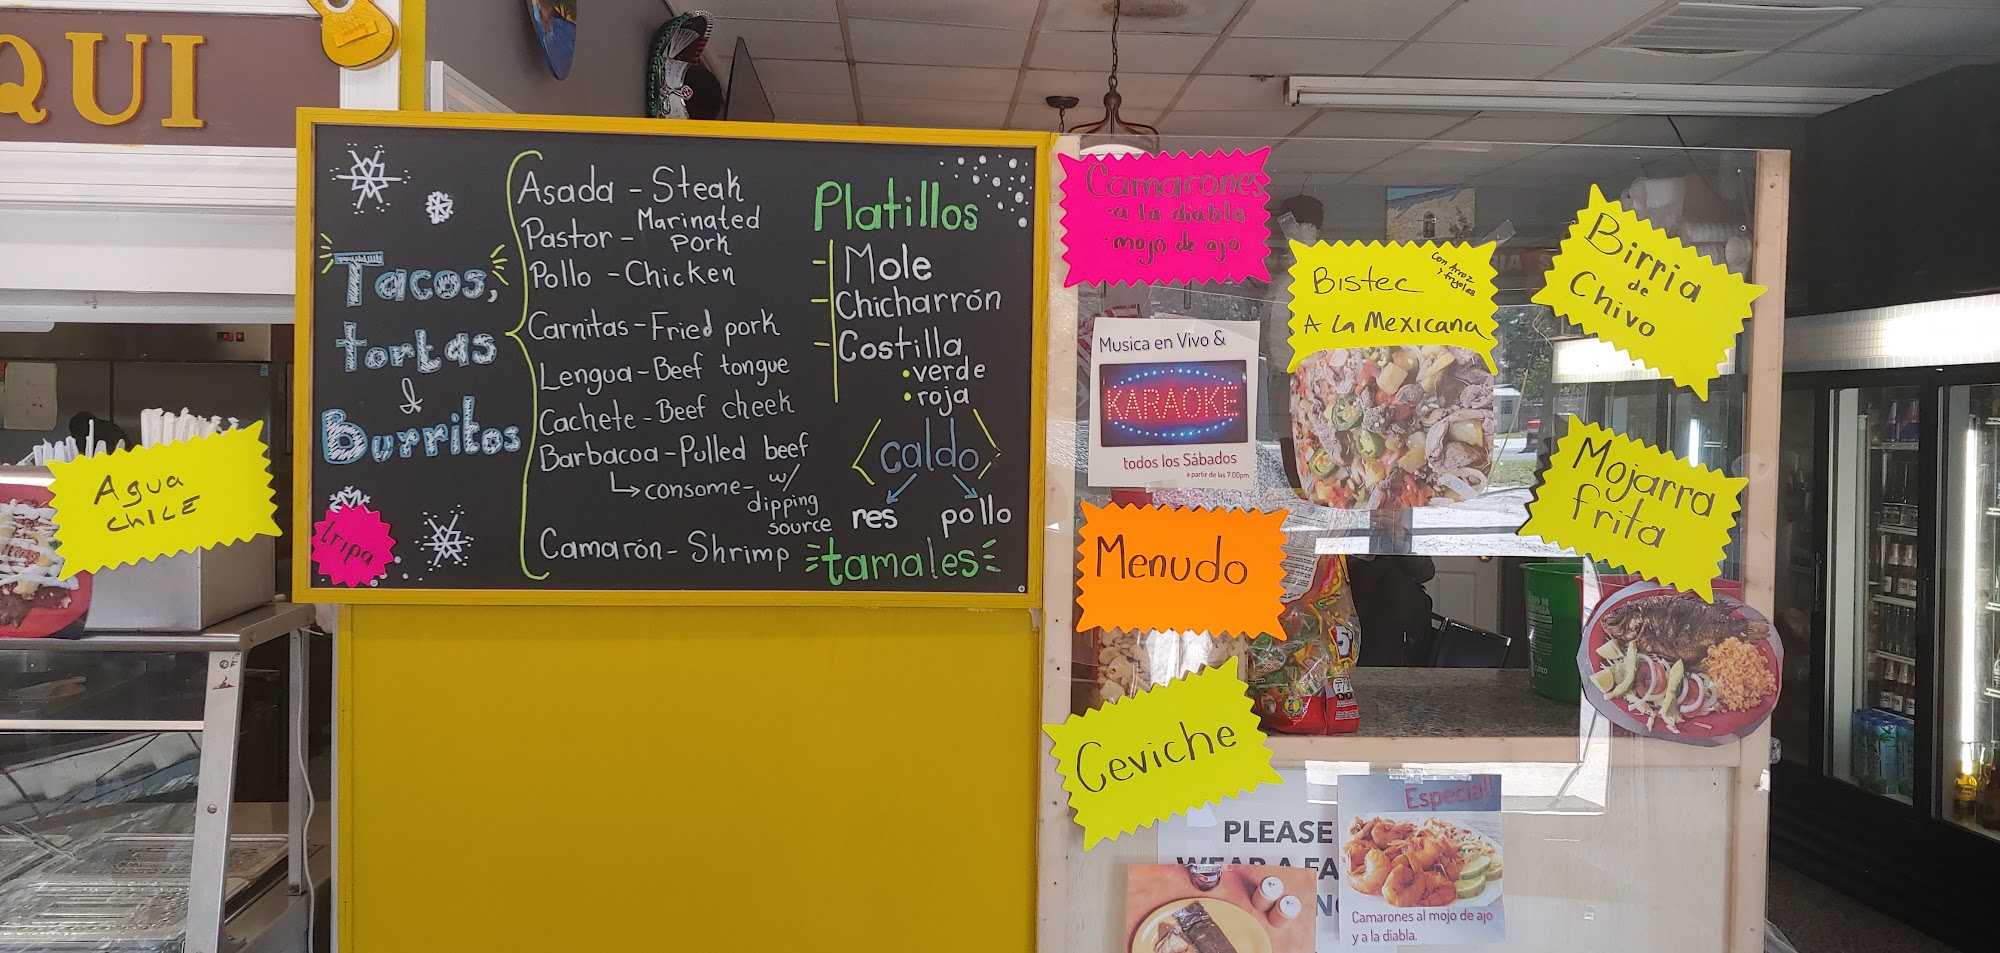 QUI
Tacos,
tortas
&
Burritos
Asada - Steak
Pastor - Marinated
pork
Pollo - Chicken
Carnitas - Fried pork
Lengua - Beef tongue
Cachete - Beef cheek
Barbacoa - Pulled beef
consome - w/
dipping
source
Camarón - Shrimp
tripa
Platillos
- Mole
- Chicharrón
- Costilla
• verde
• roja
caldo
res pollo
tamales
Agua
CHILE
Camarones
• a la diabla
• mojo de ajo
Musica en Vivo &
KARAOKE
todos los Sábados
a partir de las 7:00pm
Bistec
A La Mexicana
Con Arroz
y frijoles
Birria
de
Chivo
Mojarra
frita
Menudo
Ceviche
PLEASE
WEAR A FA
Especial!
Camarones al mojo de ajo
y a la diabla.